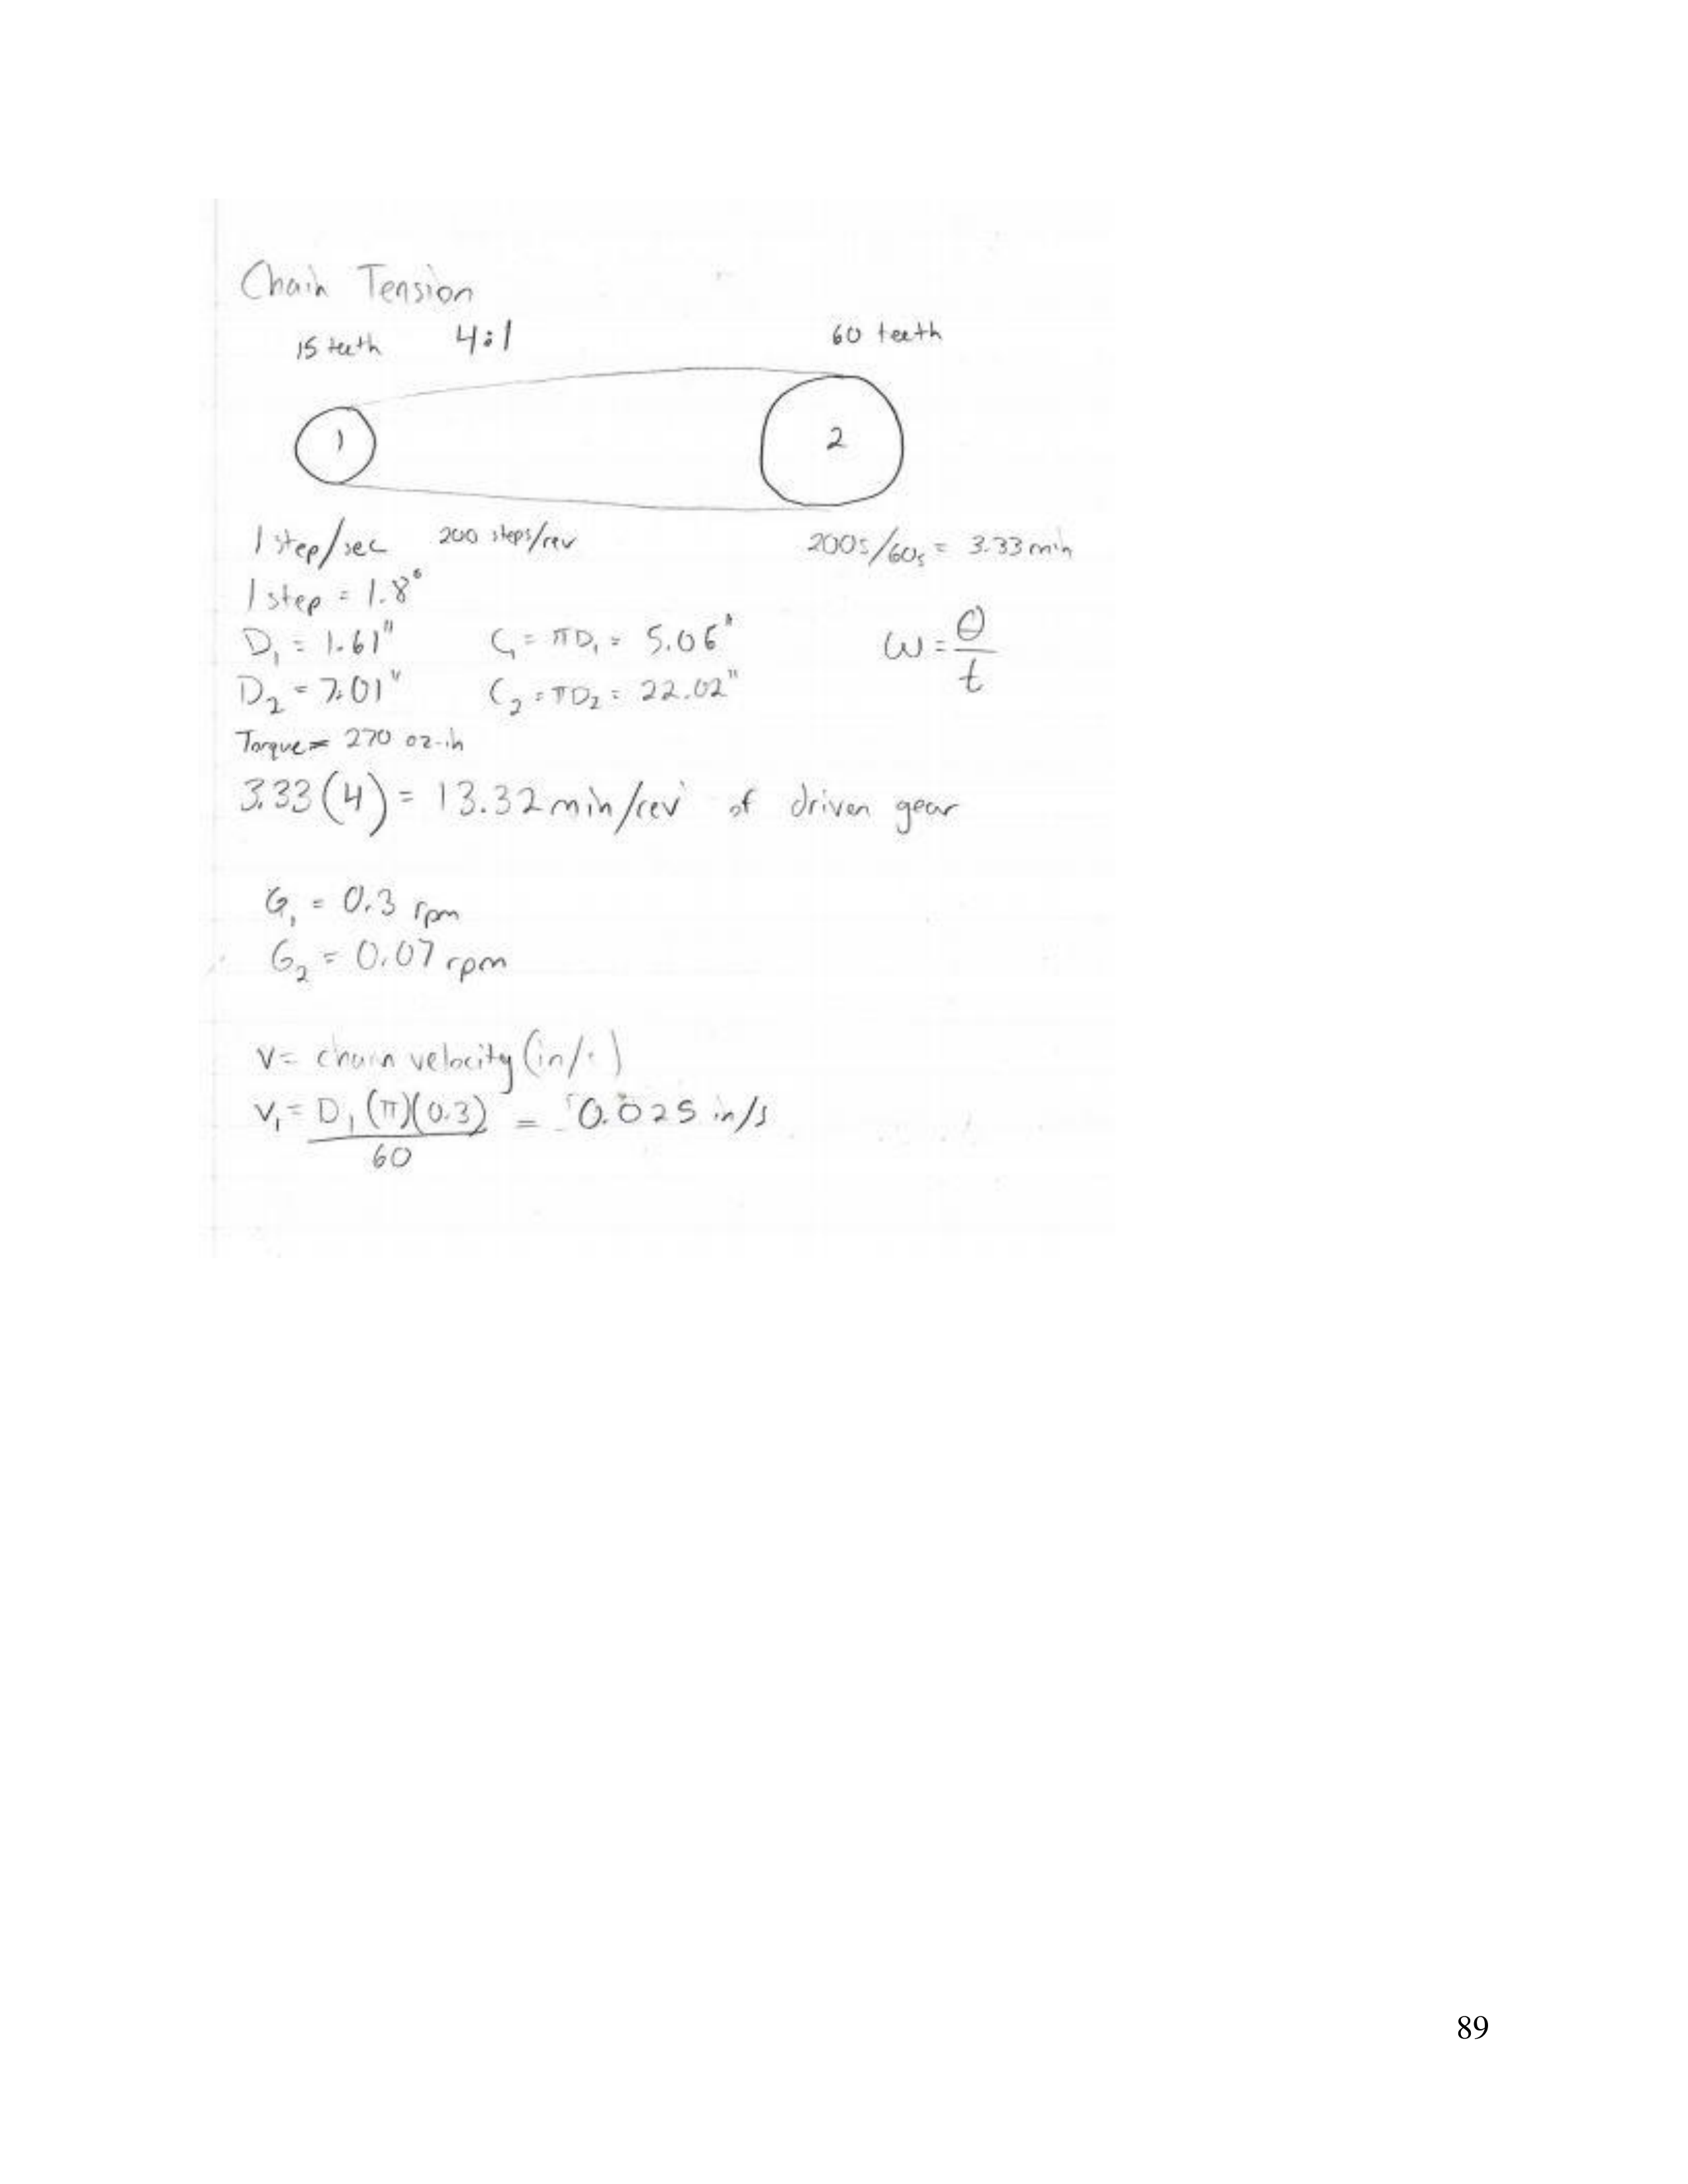 Chain Tension
15 teeth 4:1 60 teeth
1 2
1 step/sec 200 steps/rev 200s/60s = 3.33 min
1 step = 1.8°
D₁ = 1.61" C₁ = πD₁ = 5.06" ω = θ/t
D₂ = 7.01" C₂ = πD₂ = 22.02"
Torque = 270 oz-in
3.33(4) = 13.32 min/rev of driven gear
G₁ = 0.3 rpm
G₂ = 0.07 rpm
V = chain velocity (in/
V₁ = D₁(π)(0.3) = 0.025 in/s
60
89